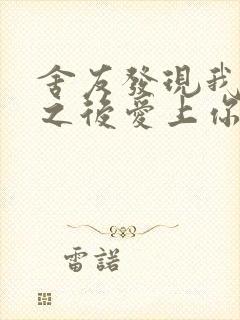 舍友發現我
之後愛上你
雷諾